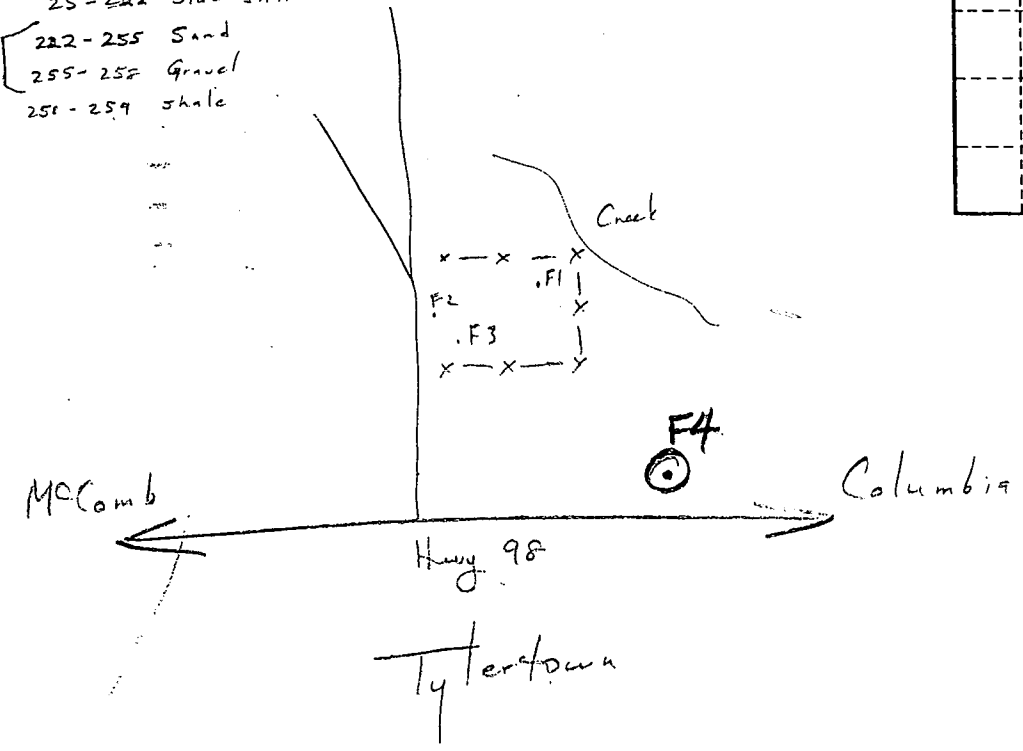 222-255 Sand
255-258 Gravel
258-259 shale
Creek
x — x — x
.F1
x
F2
.F3
x — x — x
F4
McComb
Columbia
Hwy 98
Tylertown